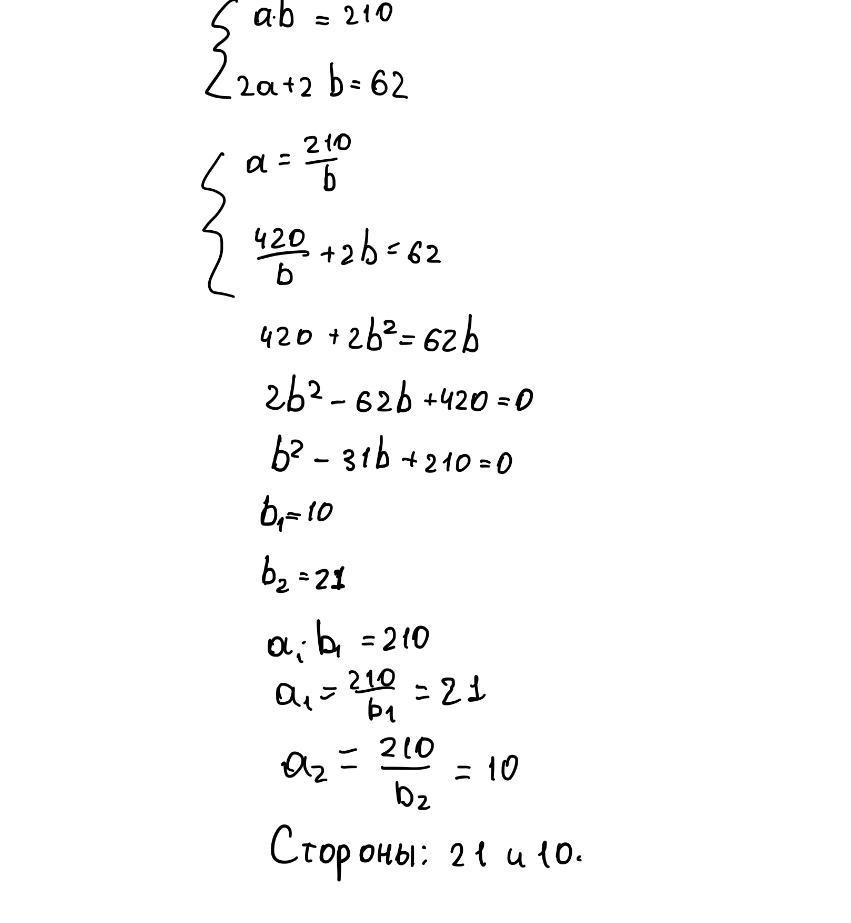 a·b = 210
2a+2 b = 62
a = 210/b
420/b + 2b = 62
420 + 2b² = 62b
2b² - 62b + 420 = 0
b² - 31b + 210 = 0
b₁ = 10
b₂ = 21
a₁· b₁ = 210
a₁ = 210/b₁ = 21
a₂ = 210/b₂ = 10
Стороны: 21 и 10.